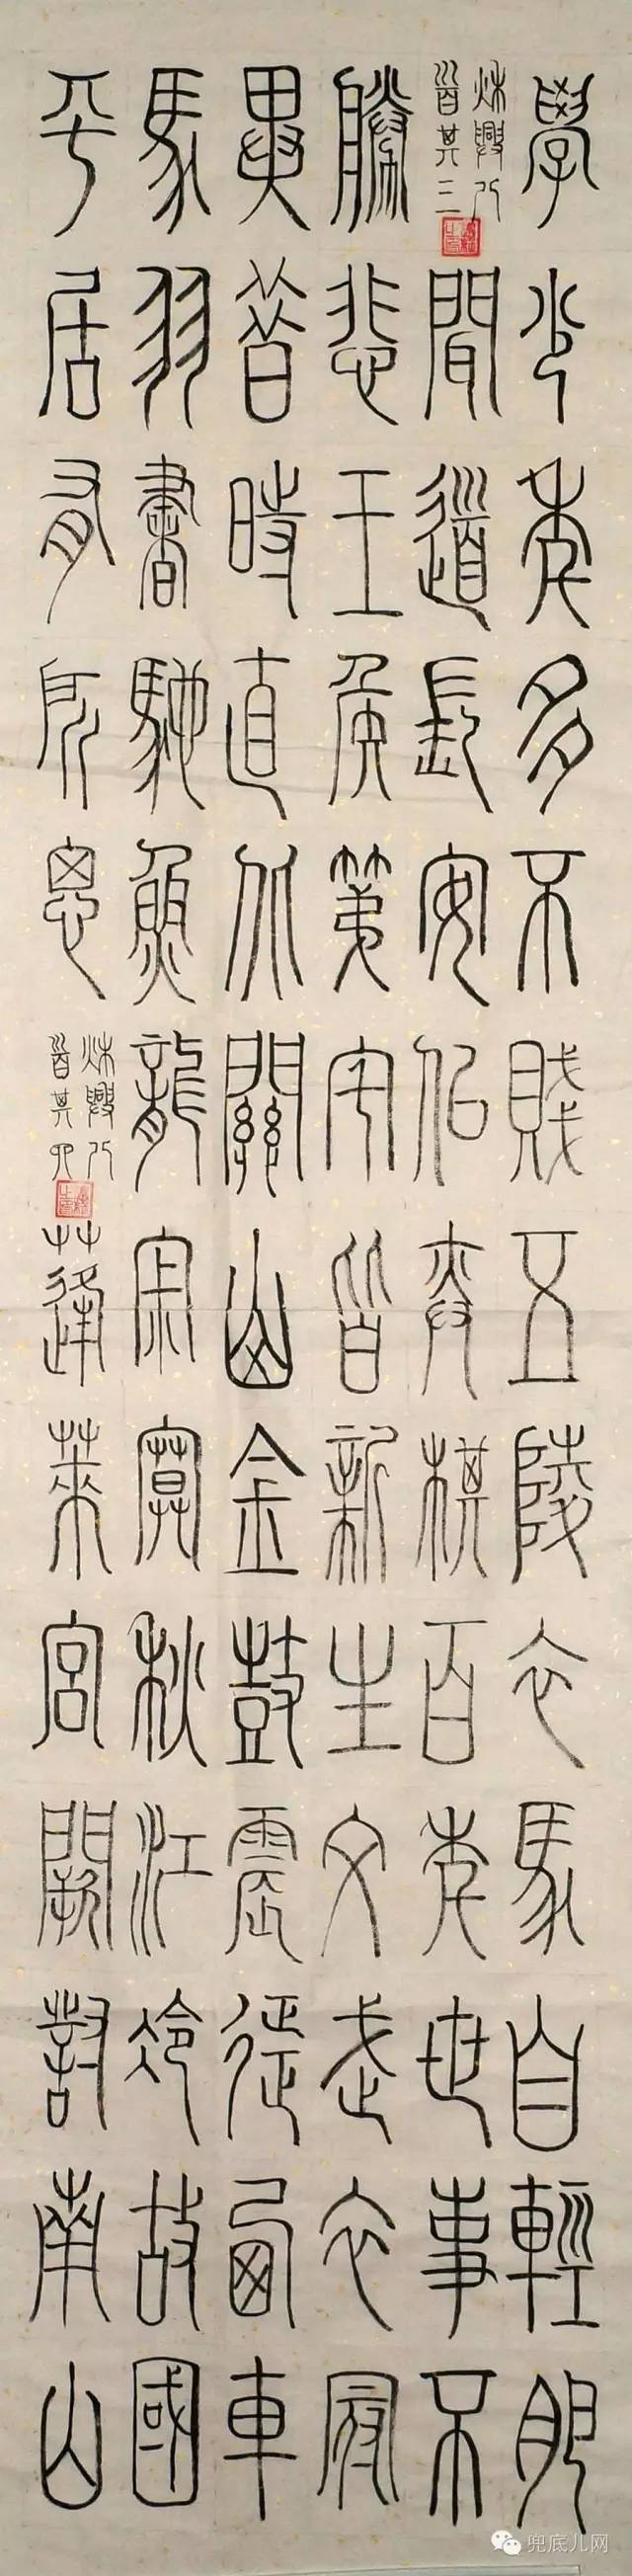 學少年多不賤五陵衣馬自輕肥
秋興八
首其三
聞道長安似弈棋百年世事不
勝悲王侯第宅皆新主文武衣冠
異昔時直北關山金鼓震征西車
馬羽書馳魚龍寂寞秋江冷故國
平居有所思
秋興八
首其四
蓬萊宮闕對南山
兜底儿网